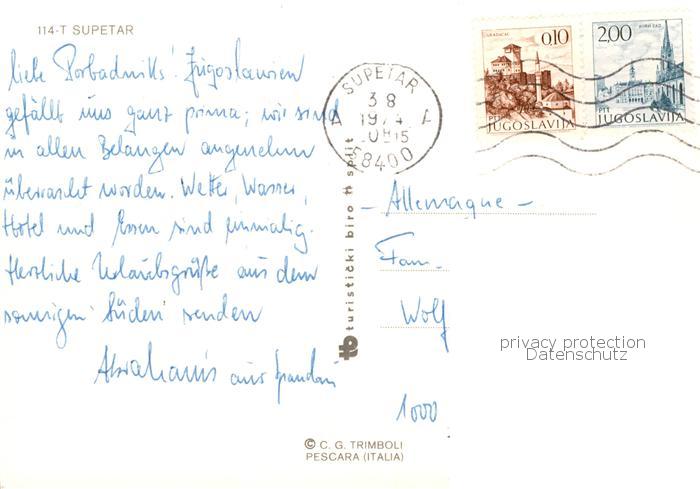 114-T SUPETAR
liebe Porbadniks! Jugoslawien
gefällt uns ganz prima; wir sind
in allen Belangen angenehm
überrascht worden. Wetter, Wasser,
Hotel und Essen sind einmalig.
Herzliche Urlaubsgrüße aus dem
sonnigen Süden senden
Abrahams aus Spandau
turistički biro split
tb
SUPETAR
3 8
1974
58400
GRADAČAC
0,10
PTT
JUGOSLAVIJA
NOVI SAD
2,00
PTT
JUGOSLAVIJA
- Allemagne -
Fam.
Wolf
1000
privacy protection
Datenschutz
© C. G. TRIMBOLI
PESCARA (ITALIA)